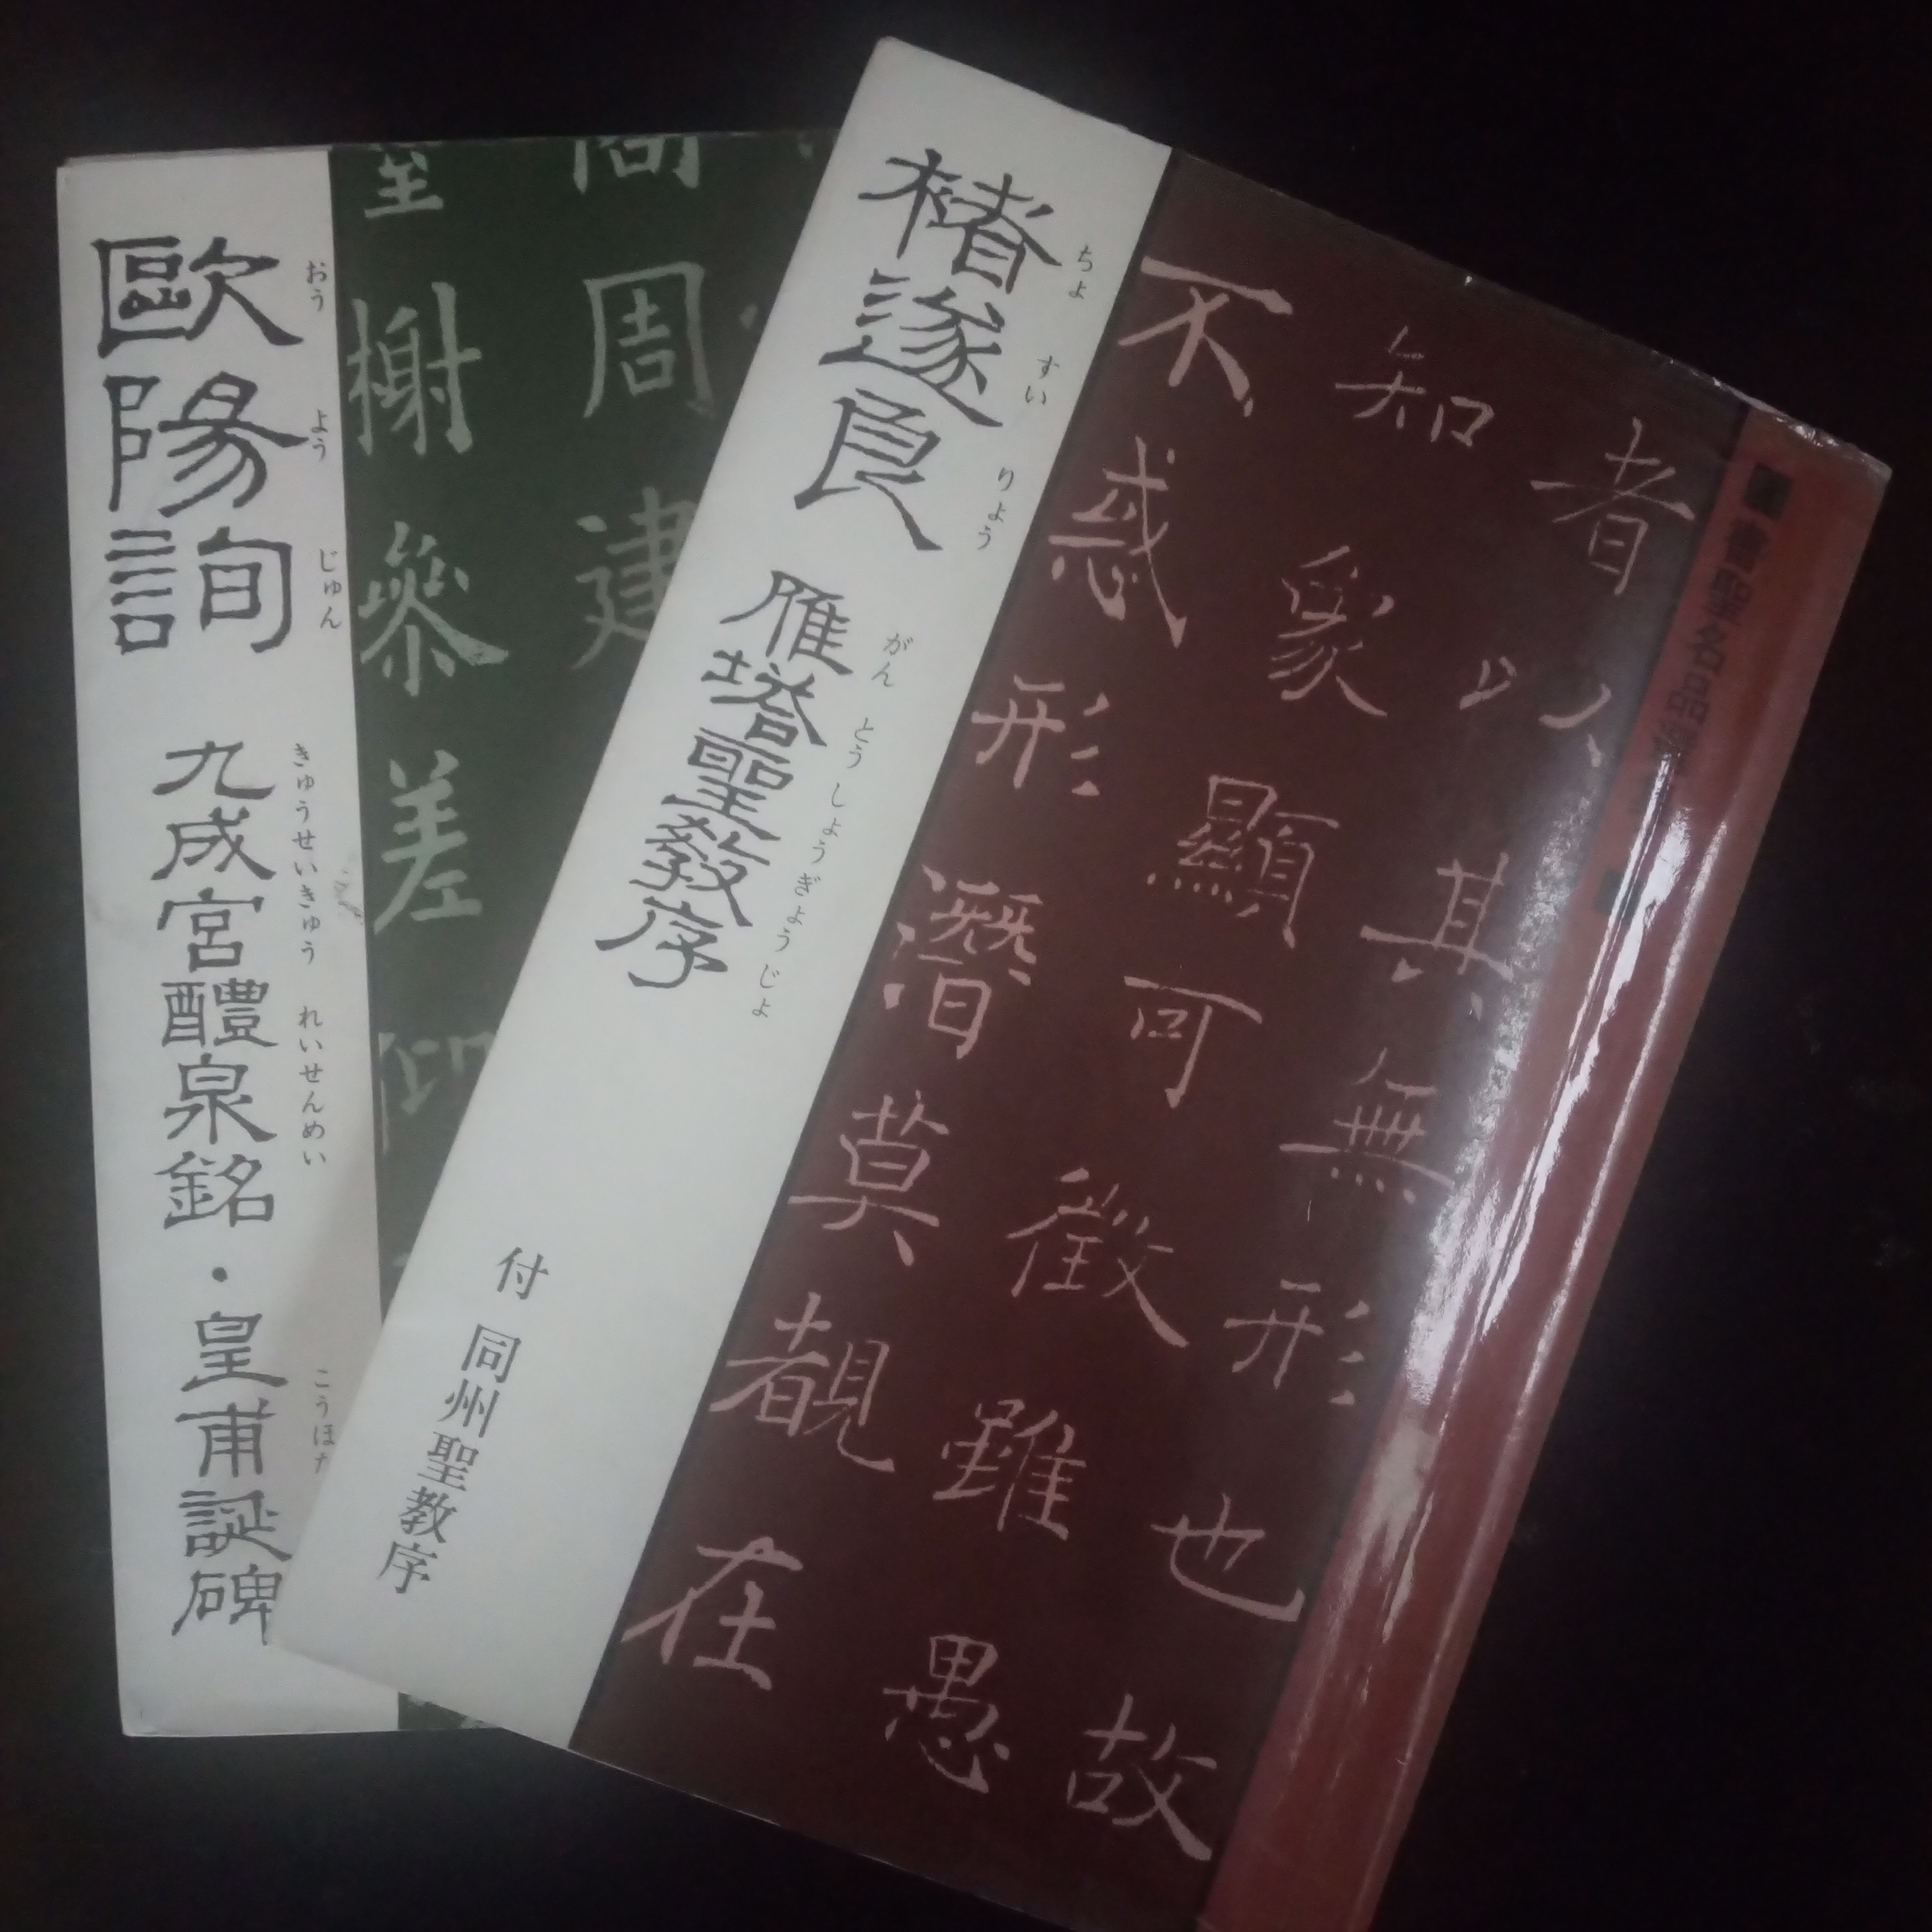 歐陽詢
おうようじゅん
九成宮醴泉銘・皇甫誕碑
きゅうせいきゅうれいせんめい
こうほた
周建
榭叅差仰
褚遂良
ちょすいりょう
雁塔聖教序
がんとうしょうぎょうじょ
付 同州聖教序
者以其無形也故
知象顯可徵雖愚
不惑形潛莫覩在